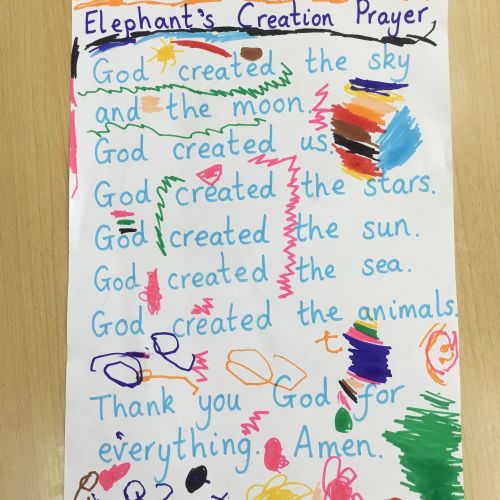 Elephant's Creation Prayer
God created the sky
and the moon.
God created us.
God created the stars.
God created the sun.
God created the sea.
God created the animals.
t
Thank you God for
everything. Amen.